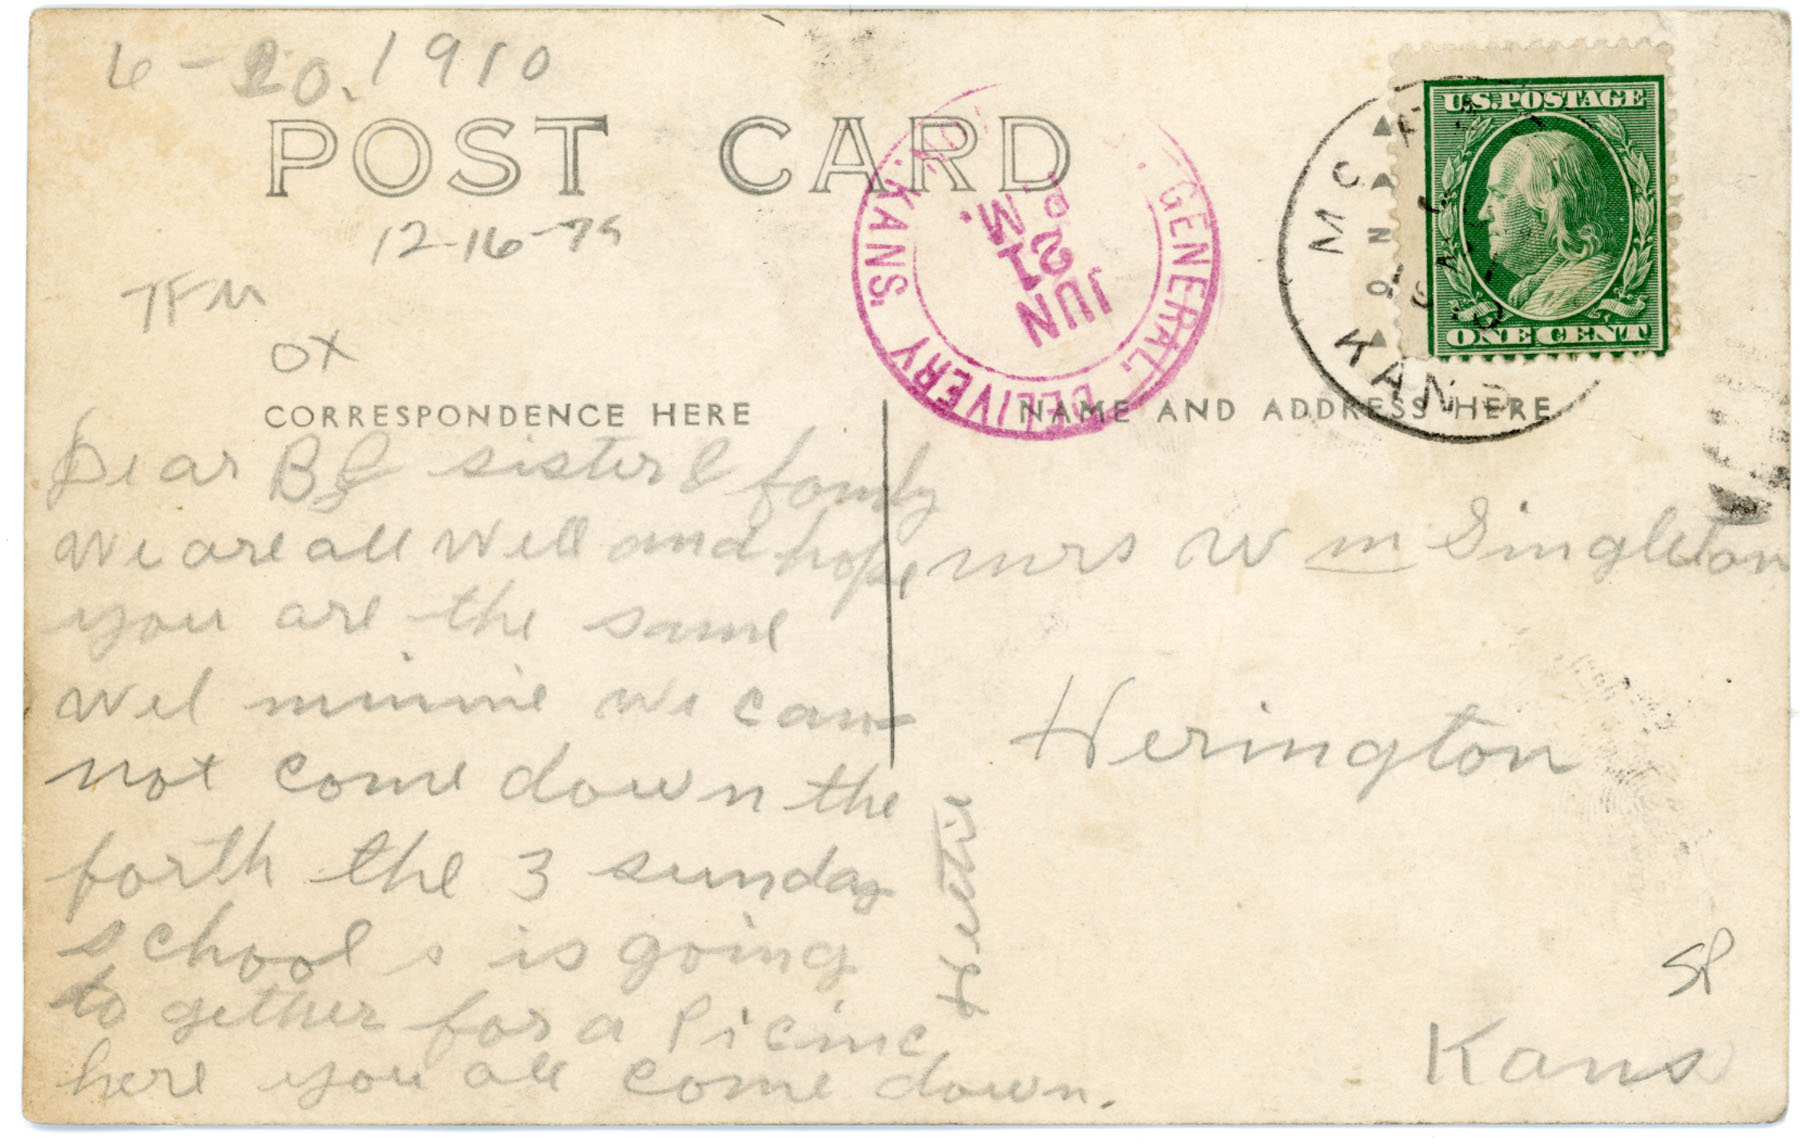 6-20.1910
POST CARD
12-16-79
TFM
OX
GENERAL DELIVERY KANS.
JUN
21
P
M.
MC
KANS
U.S.POSTAGE
ONE CENT
CORRESPONDENCE HERE
NAME AND ADDRESS HERE
Dear sister & family
We are all well and hope
you are the same
wel minnie we can
not come down the
forth the 3 sunday
school s is going
to gether for a Picinc
here you all come down.
Mrs Wm Singleton
Herington
Kans
SP